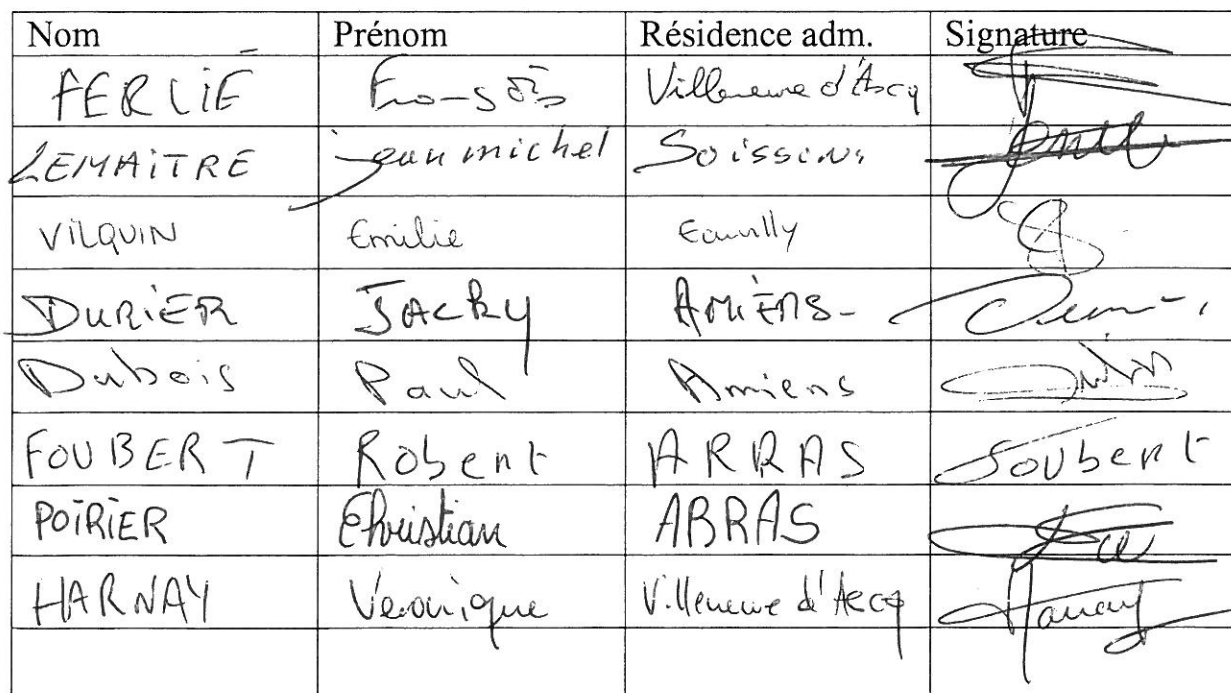 Nom Prénom Résidence adm. Signature
FERLIÉ François Villeneuve d'Ascq
LEMAITRE jean michel Soissons
VILQUIN Emilie
DURIER JACKY AMIENS-
Dubois Paul Amiens
FOUBERT Robert ARRAS Foubert
POIRIER Christian ARRAS
HARNAY Veronique Villeneuve d'Ascq Harnay